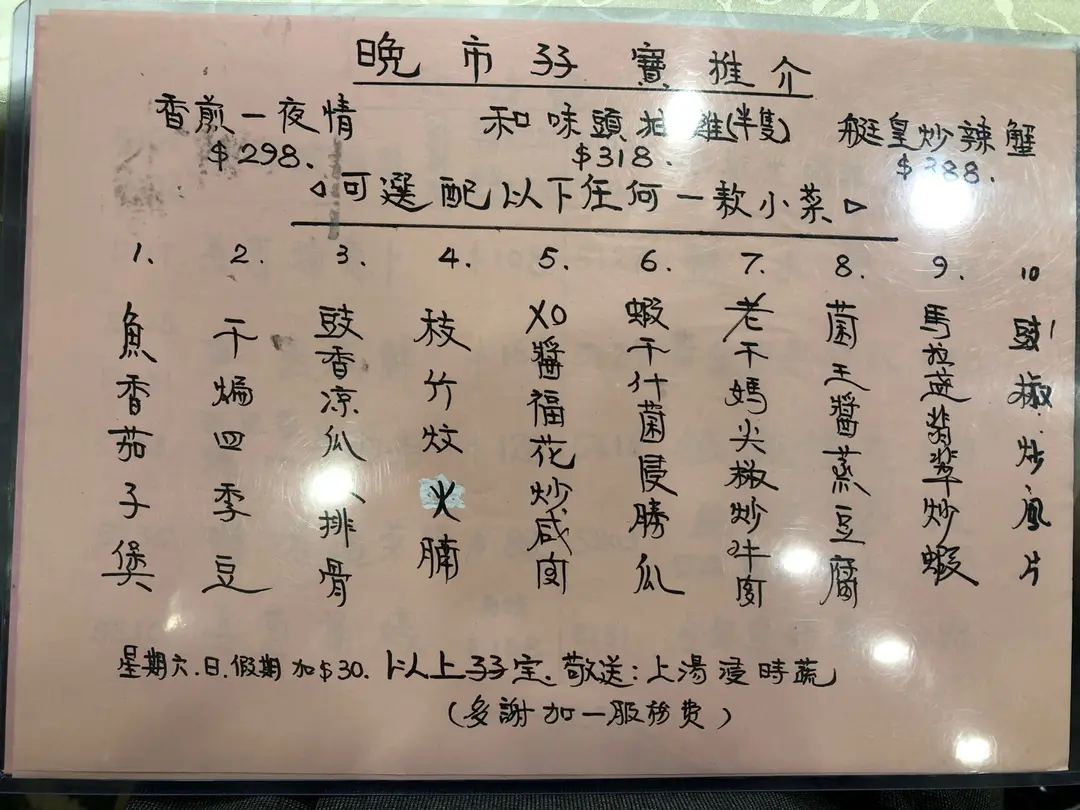 晚市孖寶推介
香煎一夜情
$298.
和味頭抽雞(半隻)
$318.
艇皇炒辣蟹
$388.
◁可選配以下任何一款小菜▷
1. 魚香茄子煲
2. 干煸四季豆
3. 豉香凉瓜排骨
4. 枝竹炆火腩
5. XO醬福花炒咸肉
6. 蝦干什菌浸勝瓜
7. 老干媽尖椒炒牛肉
8. 菌王醬蒸豆腐
9. 馬拉盞翡翠炒蝦
10 豉椒炒鳳片
星期六.日.假期加$30. 以上孖宝. 敬送:上湯浸時蔬
(多謝加一服務費)